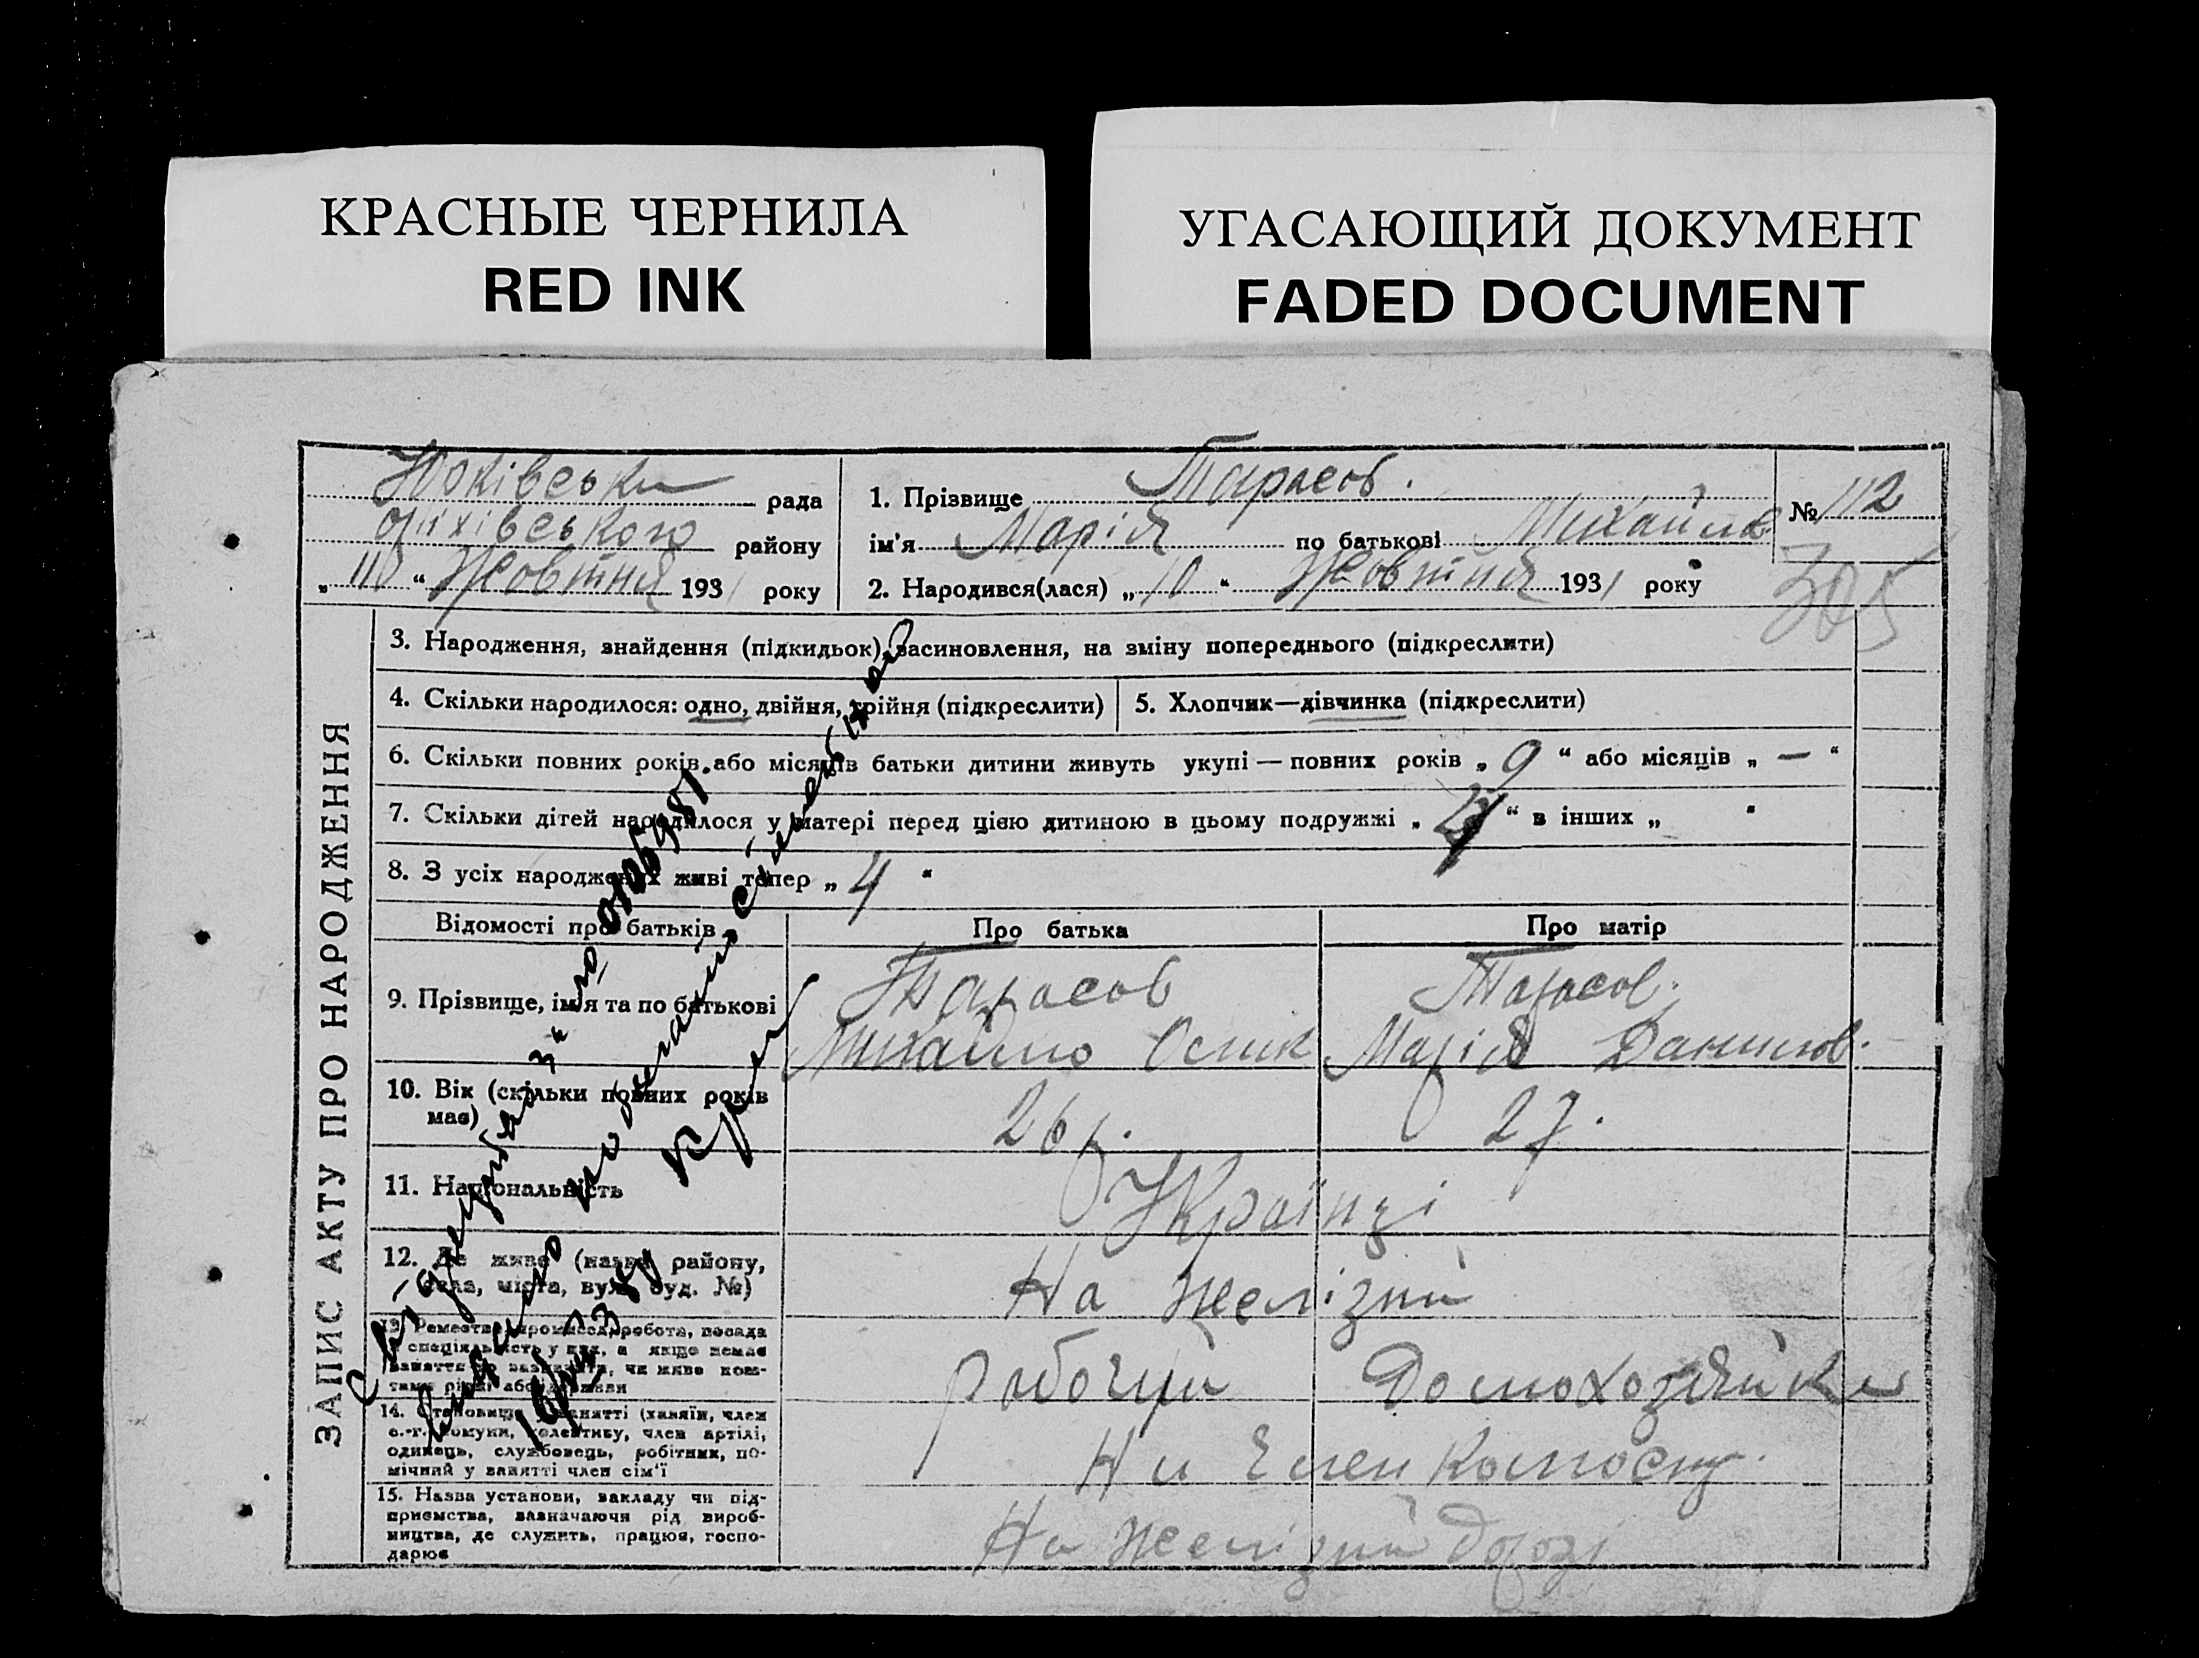 КРАСНЫЕ ЧЕРНИЛА
RED INK
УГАСАЮЩИЙ ДОКУМЕНТ
FADED DOCUMENT
Юрківська рада
оріхівського району
„ 10 “ Жовтня 1931 року
1. Прізвище Тарасов.
ім'я Марія по батькові Михайлов
2. Народився(лася) „ 10 “ Жовтня 1931 року
№ 112
305
ЗАПИС АКТУ ПРО НАРОДЖЕННЯ
3. Народження, знайдення (підкидьок), засиновлення, на зміну попереднього (підкреслити)
4. Скільки народилося: одно, двійня, трійня (підкреслити)
5. Хлопчик—дівчинка (підкреслити)
6. Скільки повних років або місяців батьки дитини живуть укупі — повних років „ 9 “ або місяців „ — “
7. Скільки дітей народилося у матері перед цією дитиною в цьому подружжі „ 4 “ в інших „ “
8. З усіх народжених живі тепер „ 4 “
Відомості про батьків
Про батька
Про матір
9. Прізвище, ім'я та по батькові
Тарасов
Михайло Осип
Тарасов.
Марія Данилов.
10. Вік (скільки повних років
має)
26 р.
27.
11. Національність
Українці
12. Де живе (назва району,
села, міста, вул. буд. №)
На желізній
13. Ремество, промисел, робота, посада
і спеціяльність у них, а якщо немає
заняття то зазначити, чи живе кош-
тами рідні або держави
робочий
Домохозяйка
14. Становище в занятті (хазяїн, член
с.-г. комуни, колективу, член артілі,
одинець, службовець, робітник, по-
мічний у занятті член сім'ї
Ни член колгоспу.
15. Назва установи, закладу чи під-
приємства, зазначаючи рід вироб-
ництва, де служить, працює, госпо-
дарює
На желізній дорозі